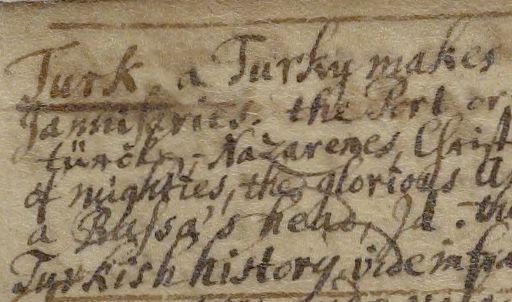 Turk. a Turky makes
Jannisaries. the Port or
türcks, Nazarenes, Christ
of mighties, the glorious
a Bassa's head, Id. the
Turkish history, vide infra